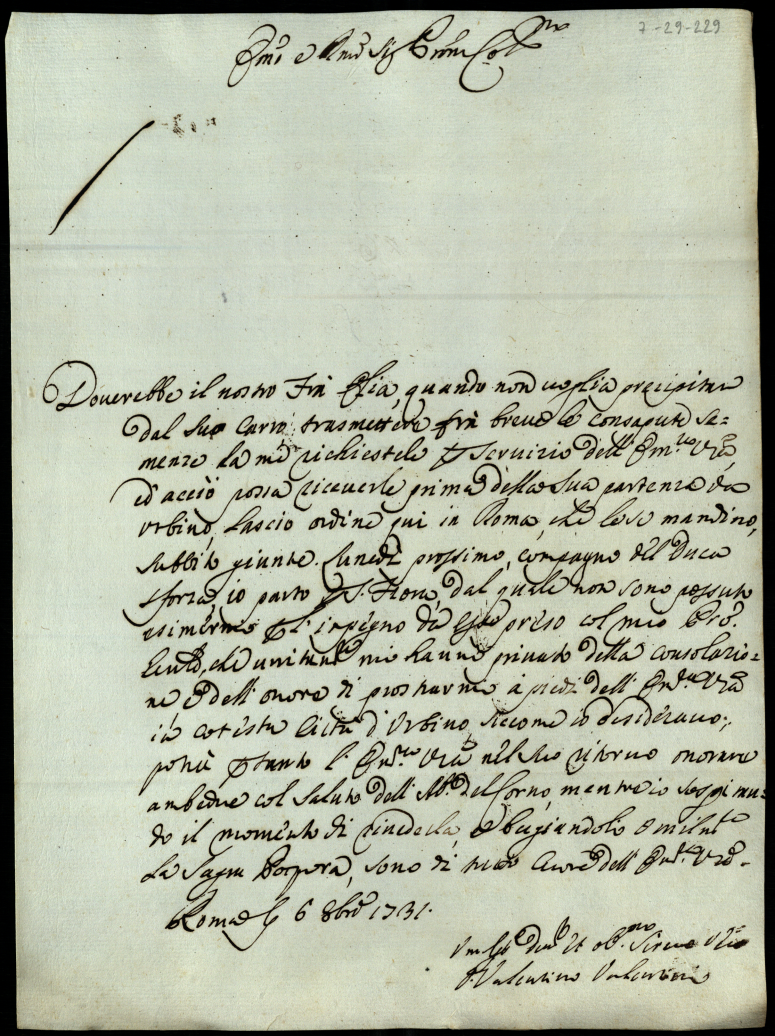 7-29-229
Emo e Rmo Sig Pron Col mo
Doverebbe il nostro Frà Elia, quando non voglia precipitar
dal suo Carro trasmettere frà breve le consapute se=
menze da me richiestele p servizio dell' Em.za Vrã,
ed acciò possa riceverle prima della sua partenza da
Urbino, lascio ordine qui in Roma, che le se mandino,
subbito giunte. Lunedì prossimo, compagno del Duca
Sforza, io parto p S. Fiora, dal quale non sono possuto
esimerme p l'impegno da esso preso col mio Pro.
che unitam.te mi hanno privato della consolazio=
ne e dell' onore di prostrarme à piedi dell' Em.za Vrã
in cotesta Città d' Urbino, siccome io desideravo;
potrà ptanto l' Em.za Vrã nel suo ritorno onorare
ambedue col saluto dell' Ab.e del Corno, mentre io sospiran=
do il momento di rivederla, e bugiandole umilm.te
la Sagra Porpora, sono di tutto Cuore dell' Em.za Vrã.
Roma li 6 8bre 1731.
Um.e dev.o et ob.mo Serv.e Vero
Valentino Valentini